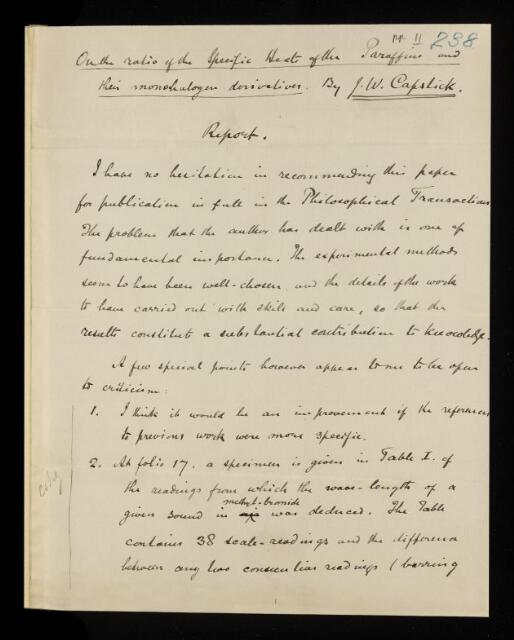 11 238
On the ratio of the Specific Heats of the Paraffins and
their monohalogen derivatives. By J.W. Capstick.
Report.
I have no hesitation in recommending this paper
for publication in full in the Philosophical Transactions
The problem that the author has dealt with is one of
fundamental importance. The experimental methods
seem to have been well-chosen and the details of the work
to have carried out with skill and care, so that the
results constitute a substantial contribution to knowledge.
A few special points however appear to me to be open
to criticism:
1. I think it would be an improvement if the references
to previous work were more specific.
2. At folio 17. a specimen is given in Table I. of
the readings from which the wave-length of a
methyl-bromide
given sound in air was deduced. The Table
contains 38 scale-readings and the difference
between any two consecutive readings (barring